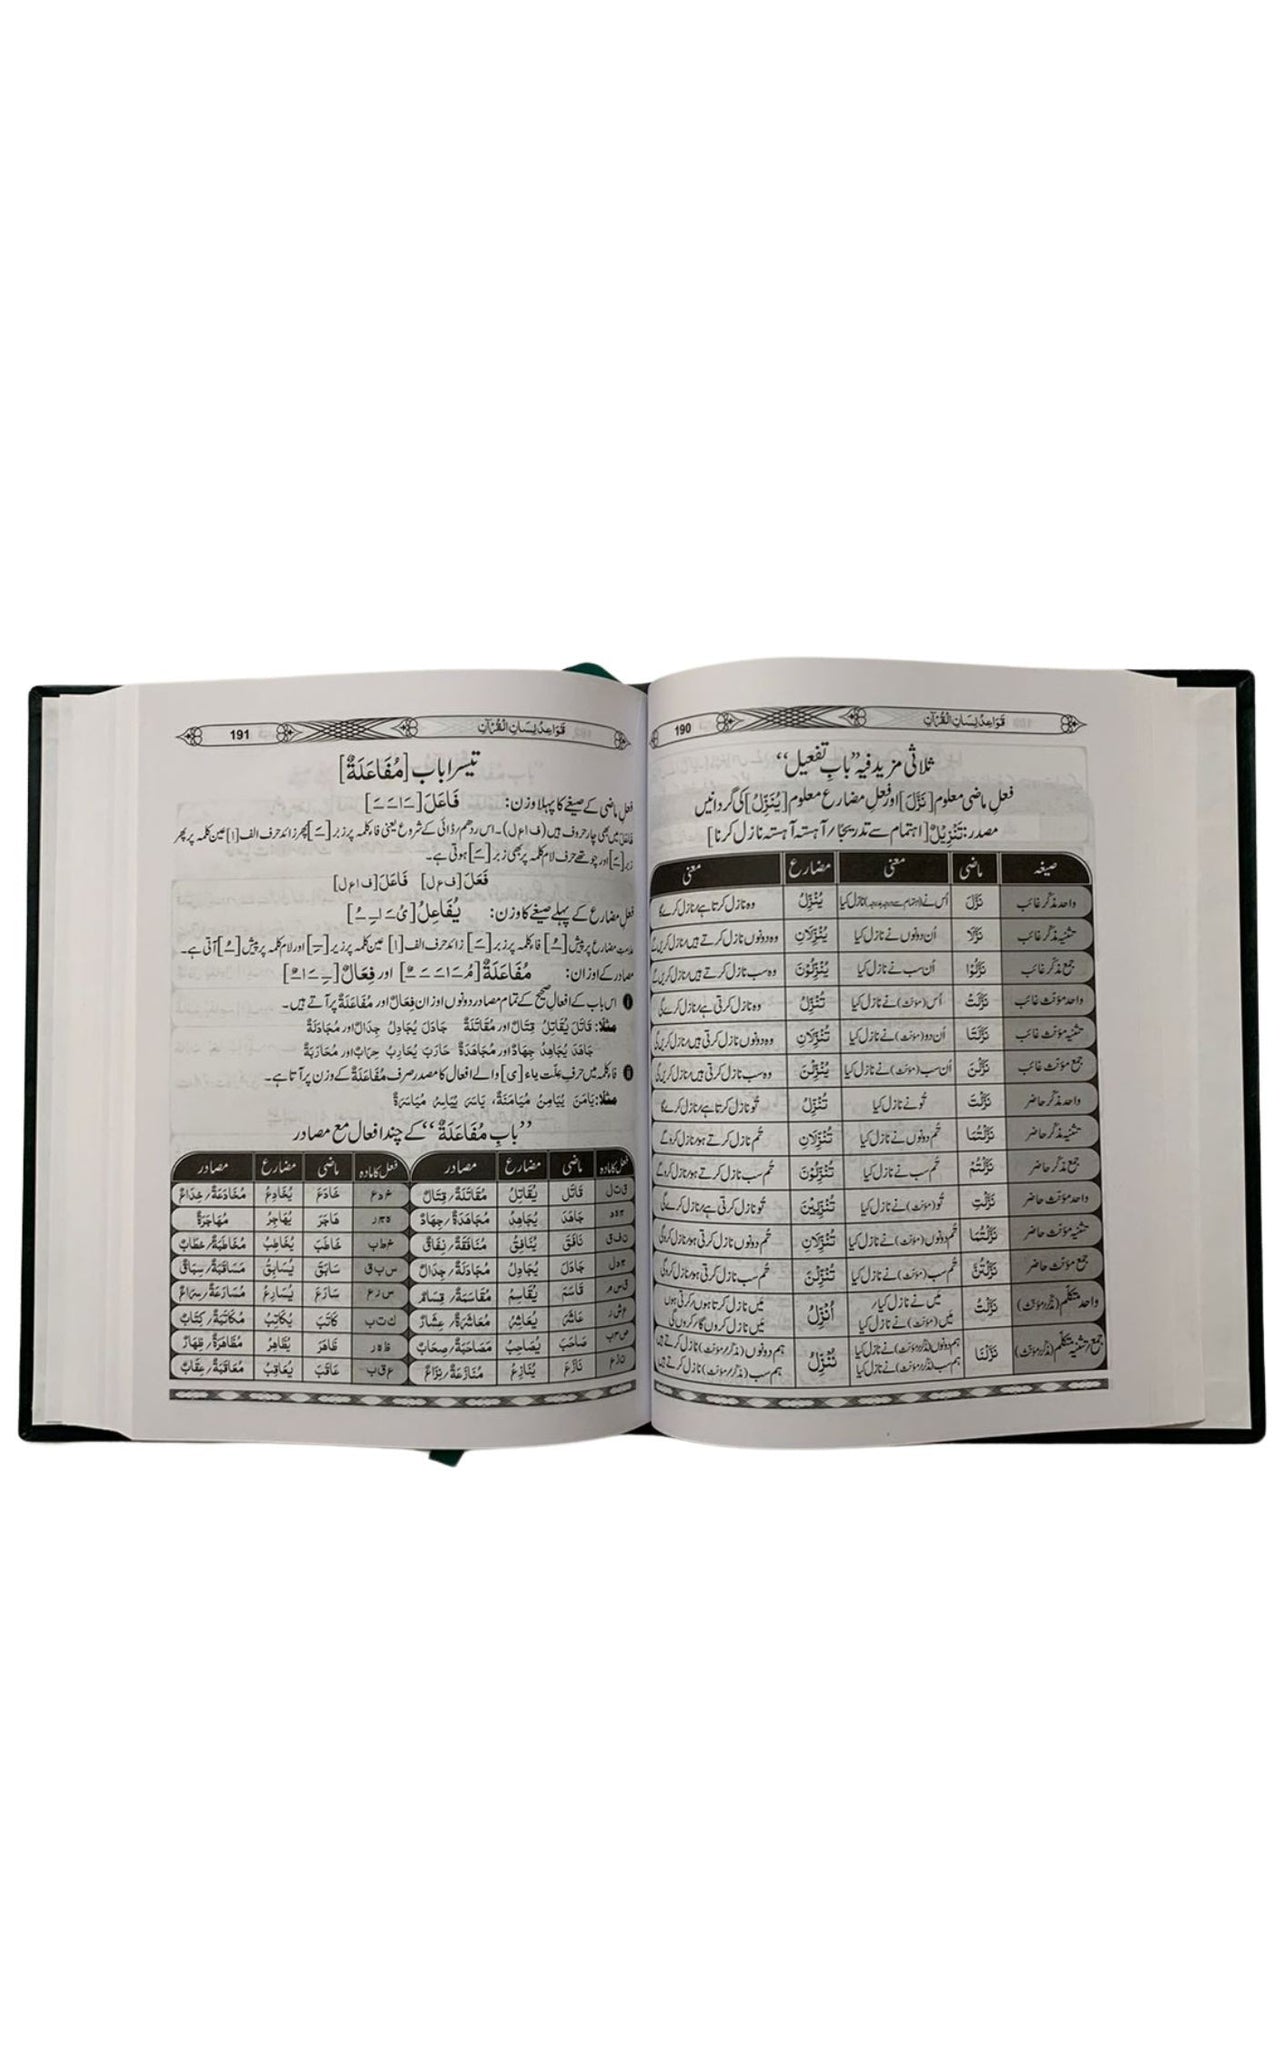 190 قَوَاعِدُ لِسَانِ الْقُرْآنِ
ثلاثی مزید فیہ ”بابِ تفعیل“
فعلِ ماضی معلوم [نَزَّلَ] اور فعلِ مضارع معلوم [یُنَزِّلُ] کی گردانیں
مصدر: تَنْزِیْلٌ [اہتمام سے تدریجًا/آہستہ آہستہ نازل کرنا]
صیغہ ماضی معنی مضارع معنی
واحد مذکر غائب نَزَّلَ اُس نے نازل کیا یُنَزِّلُ وہ نازل کرتا ہے/نازل کرے گا
تثنیہ مذکر غائب نَزَّلَا اُن دونوں نے نازل کیا یُنَزِّلَانِ وہ دونوں نازل کرتے ہیں/نازل کریں گے
جمع مذکر غائب نَزَّلُوْا اُن سب نے نازل کیا یُنَزِّلُوْنَ وہ سب نازل کرتے ہیں/نازل کریں گے
واحد مؤنث غائب نَزَّلَتْ اُس (مؤنث) نے نازل کیا تُنَزِّلُ وہ نازل کرتی ہے/نازل کرے گی
تثنیہ مؤنث غائب نَزَّلَتَا اُن دو (مؤنث) نے نازل کیا تُنَزِّلَانِ وہ دونوں نازل کرتی ہیں/نازل کریں گی
جمع مؤنث غائب نَزَّلْنَ اُن سب (مؤنث) نے نازل کیا یُنَزِّلْنَ وہ سب نازل کرتی ہیں/نازل کریں گی
واحد مذکر حاضر نَزَّلْتَ تُو نے نازل کیا تُنَزِّلُ تُو نازل کرتا ہے/نازل کرے گا
تثنیہ مذکر حاضر نَزَّلْتُمَا تُم دونوں نے نازل کیا تُنَزِّلَانِ تُم دونوں نازل کرتے ہو/نازل کرو گے
جمع مذکر حاضر نَزَّلْتُمْ تُم سب نے نازل کیا تُنَزِّلُوْنَ تُم سب نازل کرتے ہو/نازل کرو گے
واحد مؤنث حاضر نَزَّلْتِ تُو (مؤنث) نے نازل کیا تُنَزِّلِیْنَ تُو نازل کرتی ہے/نازل کرے گی
تثنیہ مؤنث حاضر نَزَّلْتُمَا تُم دونوں (مؤنث) نے نازل کیا تُنَزِّلَانِ تُم دونوں نازل کرتی ہو/نازل کرو گی
جمع مؤنث حاضر نَزَّلْتُنَّ تُم سب (مؤنث) نے نازل کیا تُنَزِّلْنَ تُم سب نازل کرتی ہو/نازل کرو گی
واحد متکلّم (مذکر/مؤنث) نَزَّلْتُ مَیں نے نازل کیا/ مَیں (مؤنث) نے نازل کیا اُنَزِّلُ مَیں نازل کرتا ہوں/کرتی ہوں مَیں نازل کروں گا/کروں گی
جمع/تثنیہ متکلّم (مذکر/مؤنث) نَزَّلْنَا ہم دونوں (مذکر/مؤنث) نے نازل کیا ہم سب (مذکر/مؤنث) نے نازل کیا نُنَزِّلُ ہم دونوں (مذکر/مؤنث) نازل کرتے ہیں ہم سب (مذکر/مؤنث) نازل کرتے ہیں
191 قَوَاعِدُ لِسَانِ الْقُرْآنِ
تیسرا باب [مُفَاعَلَةٌ]
فعلِ ماضی کے صیغے کا پہلا وزن: فَاعَلَ [ـَ ا ـَ ـَ]
فَاعَلَ میں بھی چار حروف ہیں (ف ا ع ل)۔ اس ردھم/دڈائی کے شروع یعنی فا کلمہ پر زبر [ـَ] پھر زائد حرف الف [ا] عین کلمہ پر پھر
زبر [ـَ] اور چوتھے حرف لام کلمہ پر بھی زبر [ـَ] ہوتی ہے۔
فَعَلَ [ف ع ل] فَاعَلَ [ف ا ع ل]
فعلِ مضارع کے پہلے صیغے کا وزن: یُفَاعِلُ [یُ ـَ ا ـِ ـُ]
علامتِ مضارع پر پیش [ـُ] فا کلمہ پر زبر [ـَ] زائد حرف الف [ا] عین کلمہ پر زیر [ـِ] اور لام کلمہ پر پیش [ـُ] آتی ہے۔
مصادر کے اوزان: مُفَاعَلَةٌ [مُ ـَ ا ـَ ـَ ةٌ] اور فِعَالٌ [ـِ ـَ ا ـٌ]
i اس باب کے افعالِ صحیح کے تمام مصادر دونوں اوزان فِعَالٌ اور مُفَاعَلَةٌ پر آتے ہیں۔
مثلًا: قَاتَلَ یُقَاتِلُ قِتَالٌ اور مُقَاتَلَةٌ جَادَلَ یُجَادِلُ جِدَالٌ اور مُجَادَلَةٌ
جَاهَدَ یُجَاهِدُ جِهَادٌ اور مُجَاهَدَةٌ حَارَبَ یُحَارِبُ حِرَابٌ اور مُحَارَبَةٌ
ii فا کلمہ میں حرفِ علّت یاء [ی] والے افعال کا مصدر صرف مُفَاعَلَةٌ کے وزن پر آتا ہے۔
مثلًا: یَامَنَ یُیَامِنُ مُیَامَنَةٌ، یَاسَرَ یُیَاسِرُ مُیَاسَرَةٌ
”بابِ مُفَاعَلَةٌ“ کے چند افعال مع مصادر
فعل کا مادہ ماضی مضارع مصادر فعل کا مادہ ماضی مضارع مصادر
ق ت ل قَاتَلَ یُقَاتِلُ مُقَاتَلَةٌ/قِتَالٌ خ د ع خَادَعَ یُخَادِعُ مُخَادَعَةٌ/خِدَاعٌ
ج ه د جَاهَدَ یُجَاهِدُ مُجَاهَدَةٌ/جِهَادٌ ه ج ر هَاجَرَ یُهَاجِرُ مُهَاجَرَةٌ
ن ف ق نَافَقَ یُنَافِقُ مُنَافَقَةٌ/نِفَاقٌ خ ط ب خَاطَبَ یُخَاطِبُ مُخَاطَبَةٌ/خِطَابٌ
ج د ل جَادَلَ یُجَادِلُ مُجَادَلَةٌ/جِدَالٌ س ب ق سَابَقَ یُسَابِقُ مُسَابَقَةٌ/سِبَاقٌ
ق س م قَاسَمَ یُقَاسِمُ مُقَاسَمَةٌ/قِسَامٌ س ر ع سَارَعَ یُسَارِعُ مُسَارَعَةٌ/سِرَاعٌ
ع ش ر عَاشَرَ یُعَاشِرُ مُعَاشَرَةٌ/عِشَارٌ ك ت ب كَاتَبَ یُكَاتِبُ مُكَاتَبَةٌ/كِتَابٌ
ص ح ب صَاحَبَ یُصَاحِبُ مُصَاحَبَةٌ/صِحَابٌ ظ ه ر ظَاهَرَ یُظَاهِرُ مُظَاهَرَةٌ/ظِهَارٌ
ن ز ع نَازَعَ یُنَازِعُ مُنَازَعَةٌ/نِزَاعٌ ع ق ب عَاقَبَ یُعَاقِبُ مُعَاقَبَةٌ/عِقَابٌ